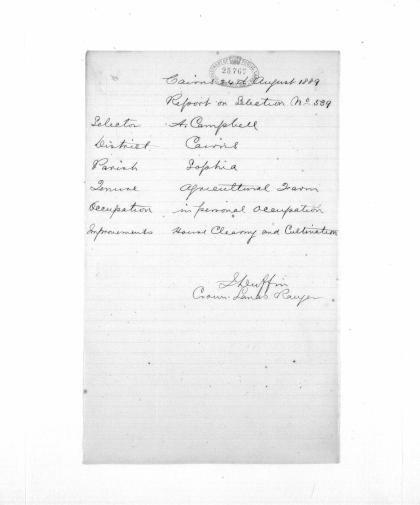 25767
Cairns 24th August 1889
Report on Selection No. 539
Selector A. Campbell
District Cairns
Parish Sophia
Tenure Agricultural Farm
Occupation in personal occupation
Improvements House Clearing and Cultivation
Crown Lands Ranger